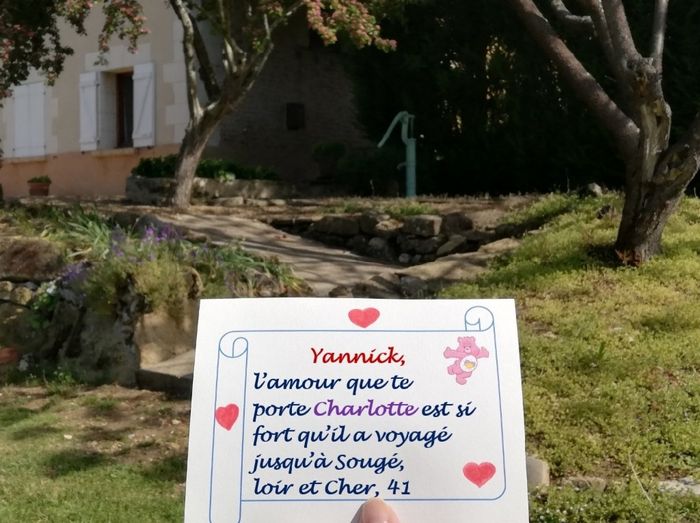 Yannick,
l'amour que te
porte Charlotte est si
fort qu'il a voyagé
jusqu'à Sougé,
loir et Cher, 41